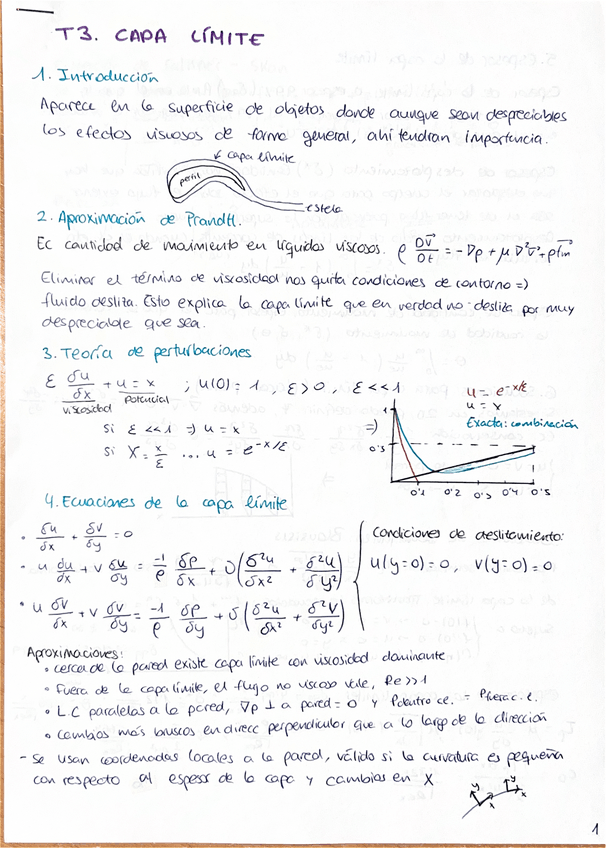 T3. CAPA LÍMITE
1. Introducción
Aparece en la superficie de objetos donde aunque sean despreciables
los efectos viscosos de forma general, ahí tendran importancia.
capa límite
perfil
estela
2. Aproximación de Prandtl.
Ec cantidad de movimiento en líquidos viscosos. ρ Dv⃗/Dt = -∇p + μ∇²v⃗ + ρf⃗m
Eliminar el término de viscosidad nos quita condiciones de contorno =)
fluido deslita. Esto explica la capa límite que en verdad no deslita por muy
despreciable que sea.
3. Teoría de perturbaciones
ε δu/δx + u = x ; u(0) = 1, ε>0, ε<<1
viscosidad potencial
si ε <<1 => u = x
si X = x/ε ... u = e^(-x/ε)
=)
u = e^(-x/ε)
u = x
Exacta: combinación
1
0's
0'1 0'2 0'3 0'4 0's
4. Ecuaciones de la capa límite
• δu/δx + δv/δy = 0
• u δu/δx + v δu/δy = -1/ρ δp/δx + υ(δ²u/δx² + δ²u/δy²)
• u δv/δx + v δv/δy = -1/ρ δp/δy + δ(δ²u/δx² + δ²v/δy²)
Condiciones de deslitamiento:
u(y=0) = 0, v(y=0) = 0
Aproximaciones:
• cerca de la pared existe capa límite con viscosidad dominante
• Fuera de la capa límite, el flujo no viscoso vale, Re>>1
• L.C paralelas a la pared, ∇p ⊥ a pared = 0 y Pdentro c.l. = Pfuera c.l.
• Cambios más bruscos en direcc perpendicular que a lo largo de la dirección
- Se usan coordenadas locales a la pared, válido si la curvatura es pequeña
con respecto al espesor de la capa y cambios en X
y x y x
1